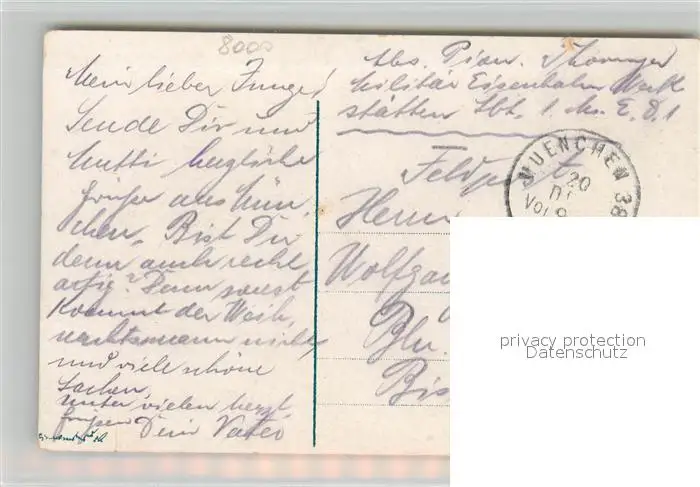 8000
Mein lieber Junge!
Sende Dir und
Mutti herzliche
Grüße aus Mün-
chen. Bist Du
denn auch recht
artig? Denn sonst
kommt der Weih-
nachtsmann nicht,
und viele schöne
Sachen.
unter vielen herzl.
Grüßen Dein Vater
Abs. Pion.
Militär Eisenbahn Werk
stätten Abt. 1. M. E. D. 1
Feldpost
MUENCHEN 38
20
Herrn
Wolfga
Bln.
privacy protection
Datenschutz